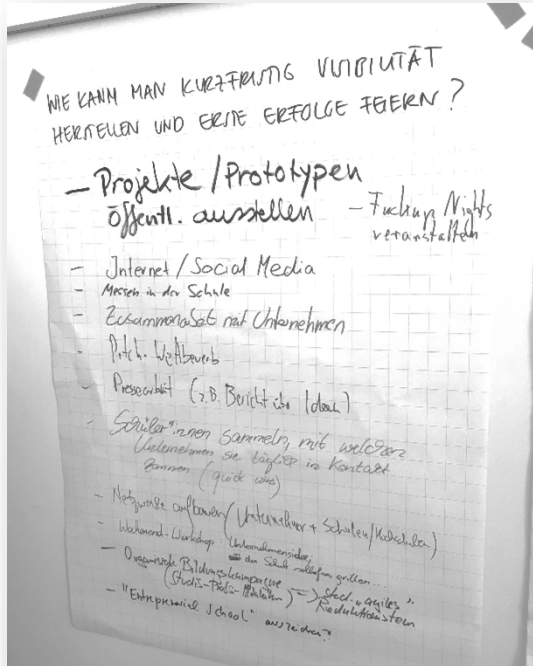 WIE KANN MAN KURZFRISTIG VISIBILITÄT
HERSTELLEN UND ERSTE ERFOLGE FEIERN?
– Projekte / Prototypen
öffentl. ausstellen
– Fuckup Nights
veranstalten
– Internet / Social Media
– Messen in der Schule
– Zusammenarbeit mit Unternehmen
– Pitch-Wettbewerb
– Pressearbeit (z.B. Bericht über Ideen)
– Schüler*innen sammeln, mit welchen
Unternehmen sie täglich in Kontakt
kommen (quick wins)
– Netzwerke aufbauen (Unternehmer + Schulen/Hochschulen)
– Wochenend-Workshop Unternehmensidee,
der Schule grillen...
–
(Studis-Profs-
– "Entrepreneurial School" auszeichnen?